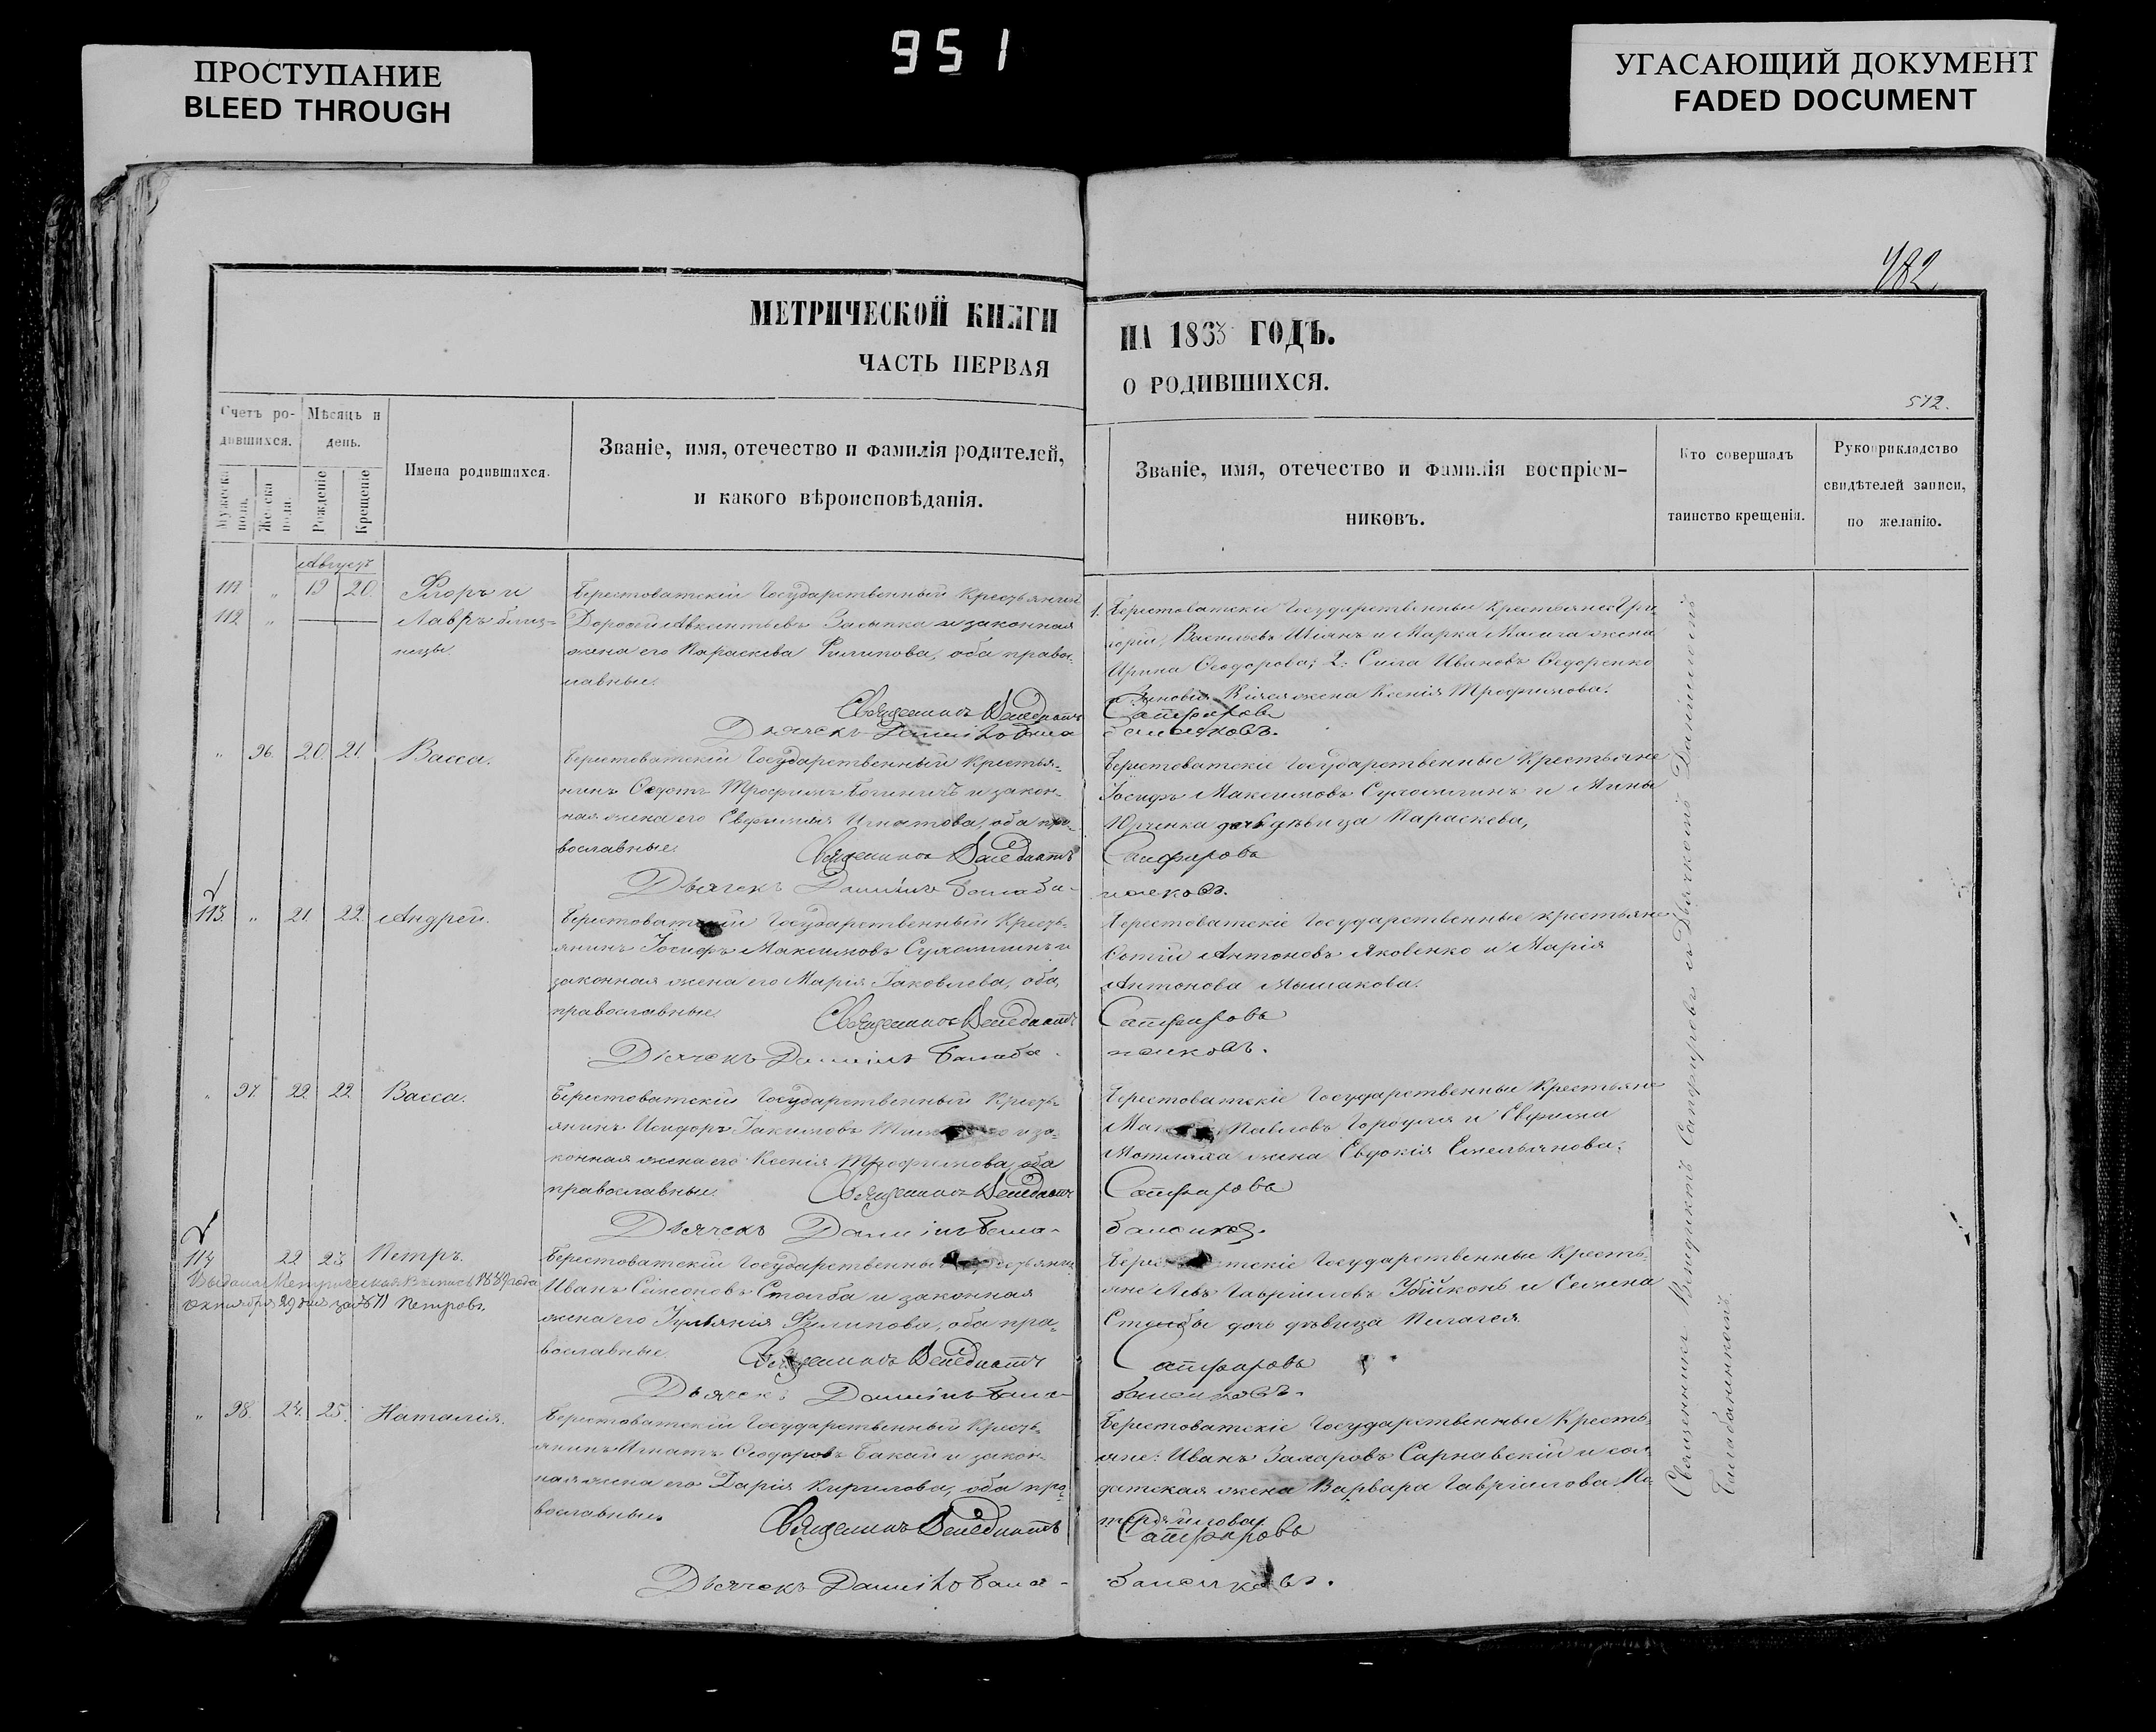 951
ПРОСТУПАНИЕ
BLEED THROUGH
УГАСАЮЩИЙ ДОКУМЕНТ
FADED DOCUMENT
482.
МЕТРИЧЕСКОЙ КНИГИ
ЧАСТЬ ПЕРВАЯ
НА 1863 ГОДЪ.
О РОДИВШИХСЯ.
512.
Счетъ ро-
дившихся.
Мужеска
пола.
Женска
пола.
Мѣсяцъ и
день.
Рожденіе
Крещеніе
Имена родившихся.
Званіе, имя, отечество и фамилія родителей,
и какого вѣроисповѣданія.
Званіе, имя, отечество и фамилія воспріем-
никовъ.
Кто совершалъ
таинство крещенія.
Рукоприкладство
свидѣтелей записи,
по желанію.
Августъ
111 " 19 20. Флоръ и
112 " Лавръ близ-
нецы.
Берестоватскій Государственный Крестьянинъ
Дорофей Авксентьевъ Засыпка и законная
жена его Параскева Филипова, оба право-
славные.
Священникъ Венедиктъ
Дьячекъ
1. Берестоватскіе Государственные Крестьяне: Гри-
горій Васильевъ и Марка жена
Ирина Ѳеодорова; 2: Сила Ивановъ Ѳедоренко
и жена Ксенія Трофимова.
Сапфировъ
" 96. 20. 21. Васса.
Берестоватскій Государственный Крестья-
нинъ Ѳедотъ Трофимъ и закон-
ная жена его Евфимія Игнатова, оба пра-
вославные.
Священникъ Венедиктъ
Дьячекъ Даніилъ Балаба-
Берестоватскіе Государственные Крестьяне
Іосифъ Максимовъ и Мины
Юрченка дочь дѣвица Параскева,
Сапфировъ
113 " 21. 22. Андрей.
Берестоватскій Государственный Кресть-
янинъ Іосифъ Максимовъ и
законная жена его Марія Іаковлева, оба
православные.
Священникъ Венедиктъ
Дьячекъ Даніилъ Балаба-
Берестоватскіе Государственные крестьяне
Фотій Антоновъ Яковенко и Марія
Антонова
Сапфировъ
" 97. 22. 22. Васса.
Берестоватскій Государственный Кресть-
янинъ Исидоръ Іакимовъ и за-
конная жена его Ксенія Трофимова, оба
православные.
Священникъ Венедиктъ
Дьячекъ Даніилъ Бала-
Берестоватскіе Государственные Крестьяне
Павловъ и
жена Евдокія Емельянова.
Сапфировъ
114 22 23 Петръ.
Выдана Метрическая Выпись 1889 года
октября 29 дня за № 671
Берестоватскій Государственный Крестьянинъ
Иванъ Симеоновъ Столба и законная
жена его Іуліанія Филипова, оба пра-
вославные.
Священникъ Венедиктъ
Дьячекъ Даніилъ Бала-
Берестоватскіе Государственные Кресть-
яне Левъ Гавріиловъ Убійконь и Семена
Столбы дочь дѣвица Пелагея
Сапфировъ
" 98. 24. 25. Наталія.
Берестоватскій Государственный Кресть-
янинъ Игнатъ Ѳеодоровъ Бакай и закон-
ная жена его Дарія Кирилова, оба пра-
вославные.
Священникъ Венедиктъ
Дьячекъ Даніилъ Бала-
Берестоватскіе Государственные Кресть-
яне: Иванъ Захаровъ Сарнавскій и сол-
датская жена Варвара Гавріилова
Сапфировъ
Священникъ Венедиктъ Сапфировъ съ Дьячкомъ Данііломъ